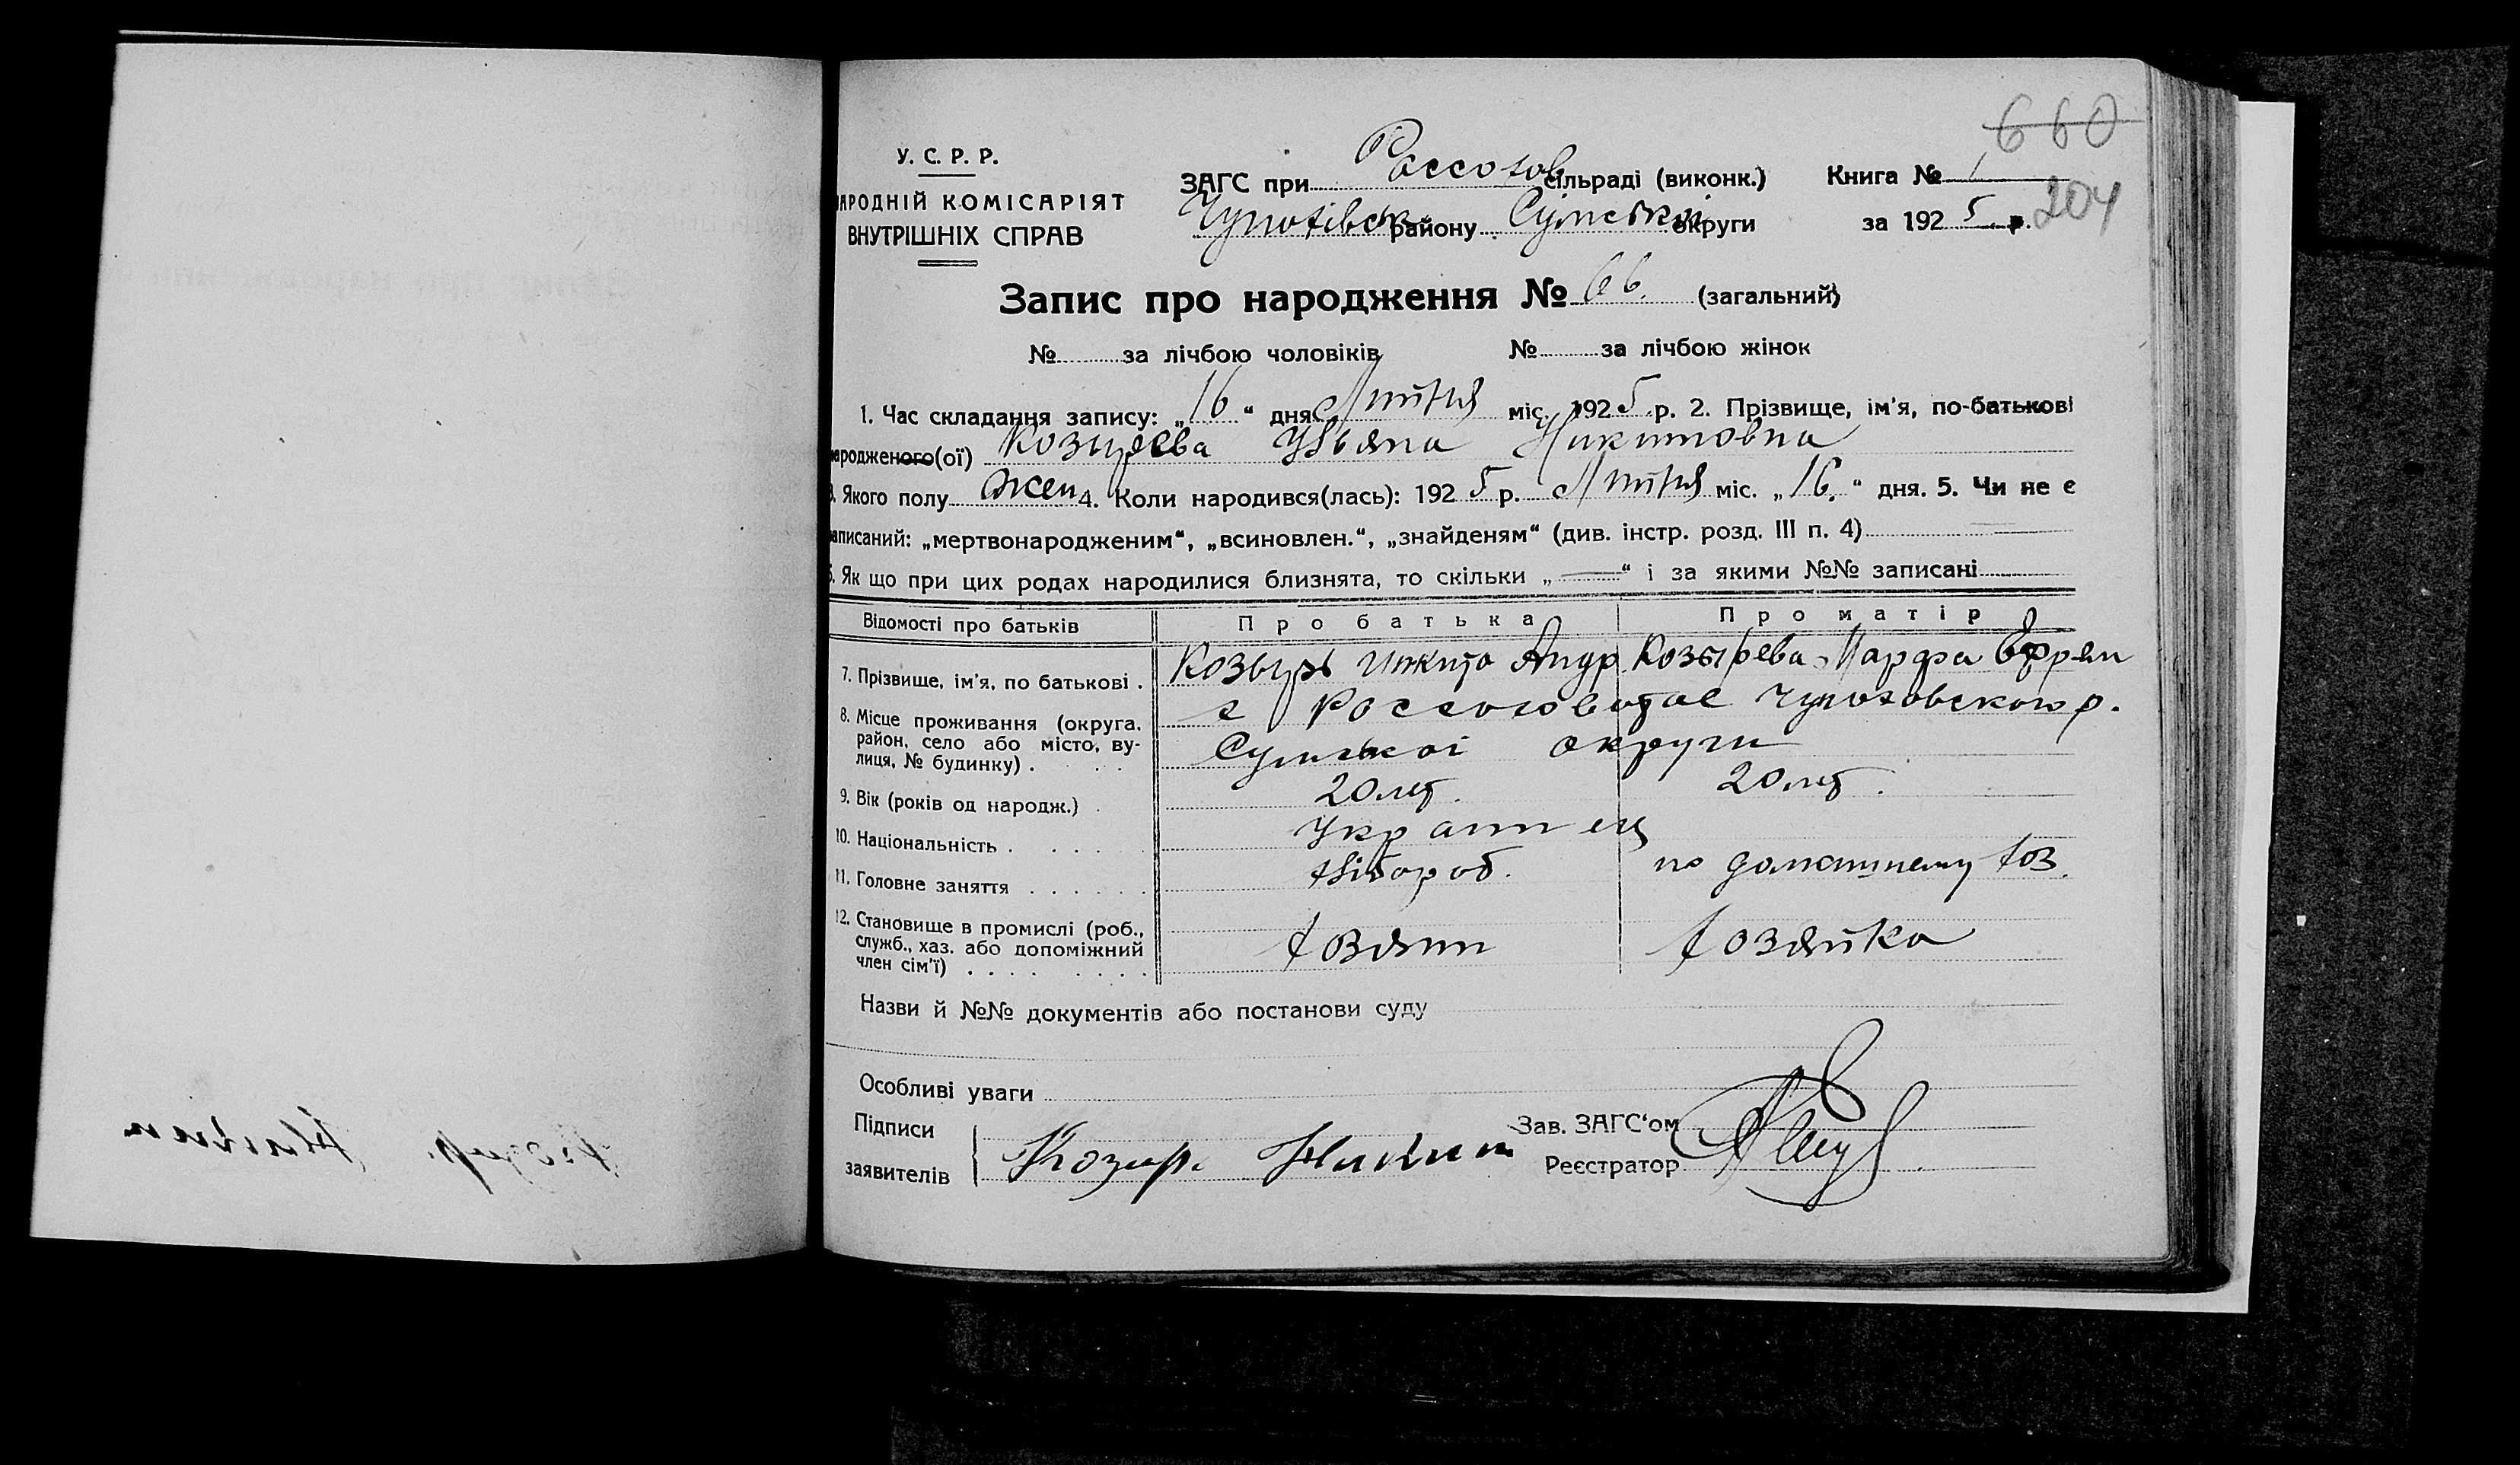 660
У. С. Р. Р.
АРОДНІЙ КОМІСАРІЯТ
ВНУТРІШНІХ СПРАВ
ЗАГС при Рассохов сільраді (виконк.) Книга № 1
Чупахівськ району Сумської округи за 1925 р. 204
Запис про народження № 66. (загальний)
№ за лічбою чоловіків № за лічбою жінок
1. Час складання запису: „16“ дня Липня міс. 1925 р. 2. Прізвище, ім'я, по-батькові
народженого(ої) Козырева Ульяна Никитовна
3. Якого полу жен 4. Коли народився(лась): 1925 р. Липня міс. „16.“ дня. 5. Чи не є
записаний: „мертвонародженим“, „всиновлен.“, „знайденям“ (див. інстр. розд. III п. 4)
6. Як що при цих родах народилися близнята, то скільки „—“ і за якими №№ записані
Відомості про батьків Про батька Про матір
7. Прізвище, ім'я, по батькові . Козырь Никита Андр Козырева Марфа Ефрем
8. Місце проживання (округа, район, село або місто, вулиця, № будинку) . с Россоховатое Чупаховского р.
Сумської округи
9. Вік (років од народж.) . 20 лет. 20 лет.
10. Національність . Украинец
11. Головне заняття хлібороб. по домашнему хоз.
12. Становище в промислі (роб., служб., хаз. або допоміжний член сім'ї) хозяин хозяйка
Назви й №№ документів або постанови суду
Особливі уваги
Підписи
заявителів Козир. Никит
Зав. ЗАГС'ом
Реєстратор